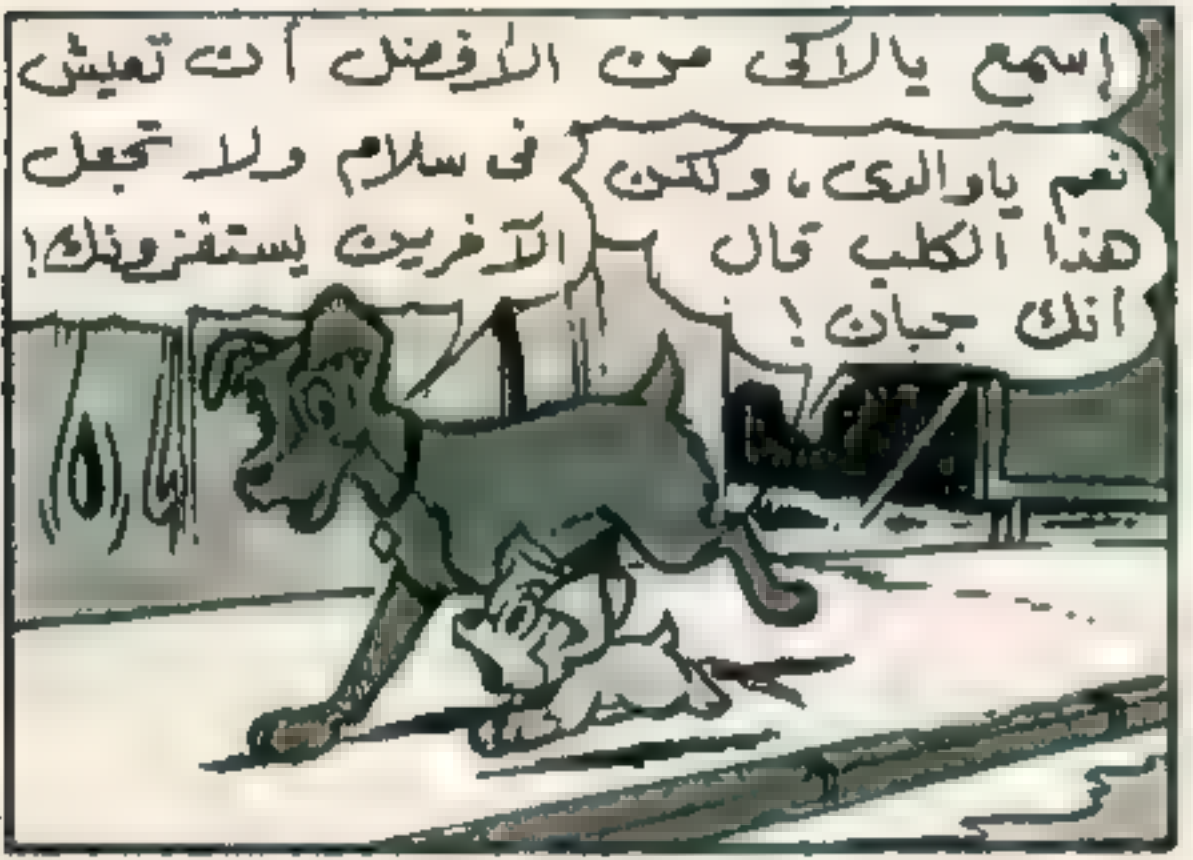 إسمع يالاكى من الأفضل أن تعيش
فى سلام ولا تجعل
الآخرين يستفزونك!
نعم ياوالدى، ولكن
هذا الكلب قال
انك جبان!